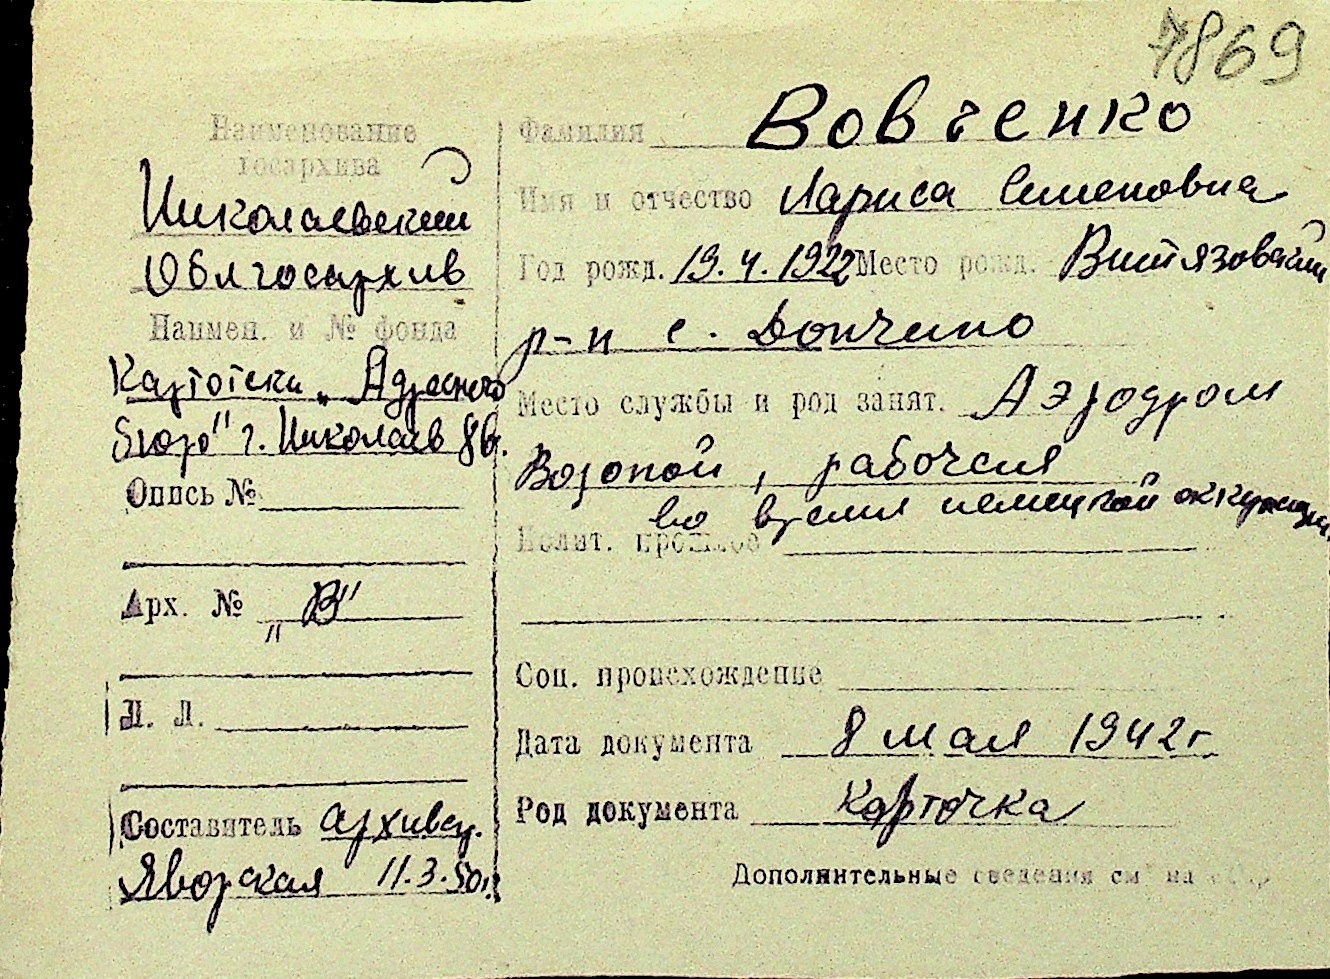 7869
Наименование
госархива
Николаевский
Облгосархив
Наимен. и № фонда
Картотека „Адресного
бюро" г. Николаев 8в.
Опись №
Арх. № „В"
Л. Л.
Составитель архивсу.
Яворская 11.3.50г.
Фамилия Вовченко
Имя и отчество Лариса Семеновна
Год рожд. 19.4.1922 Место рожд. Витязовский
р-н с.
Место службы и род занят. Аэродром
Водопой, рабочая
во время немецкой оккупации
Полит. прошлое
Соц. происхождение
Дата документа 8 мая 1942 г
Род документа Карточка
Дополнительные сведения см. на обор.